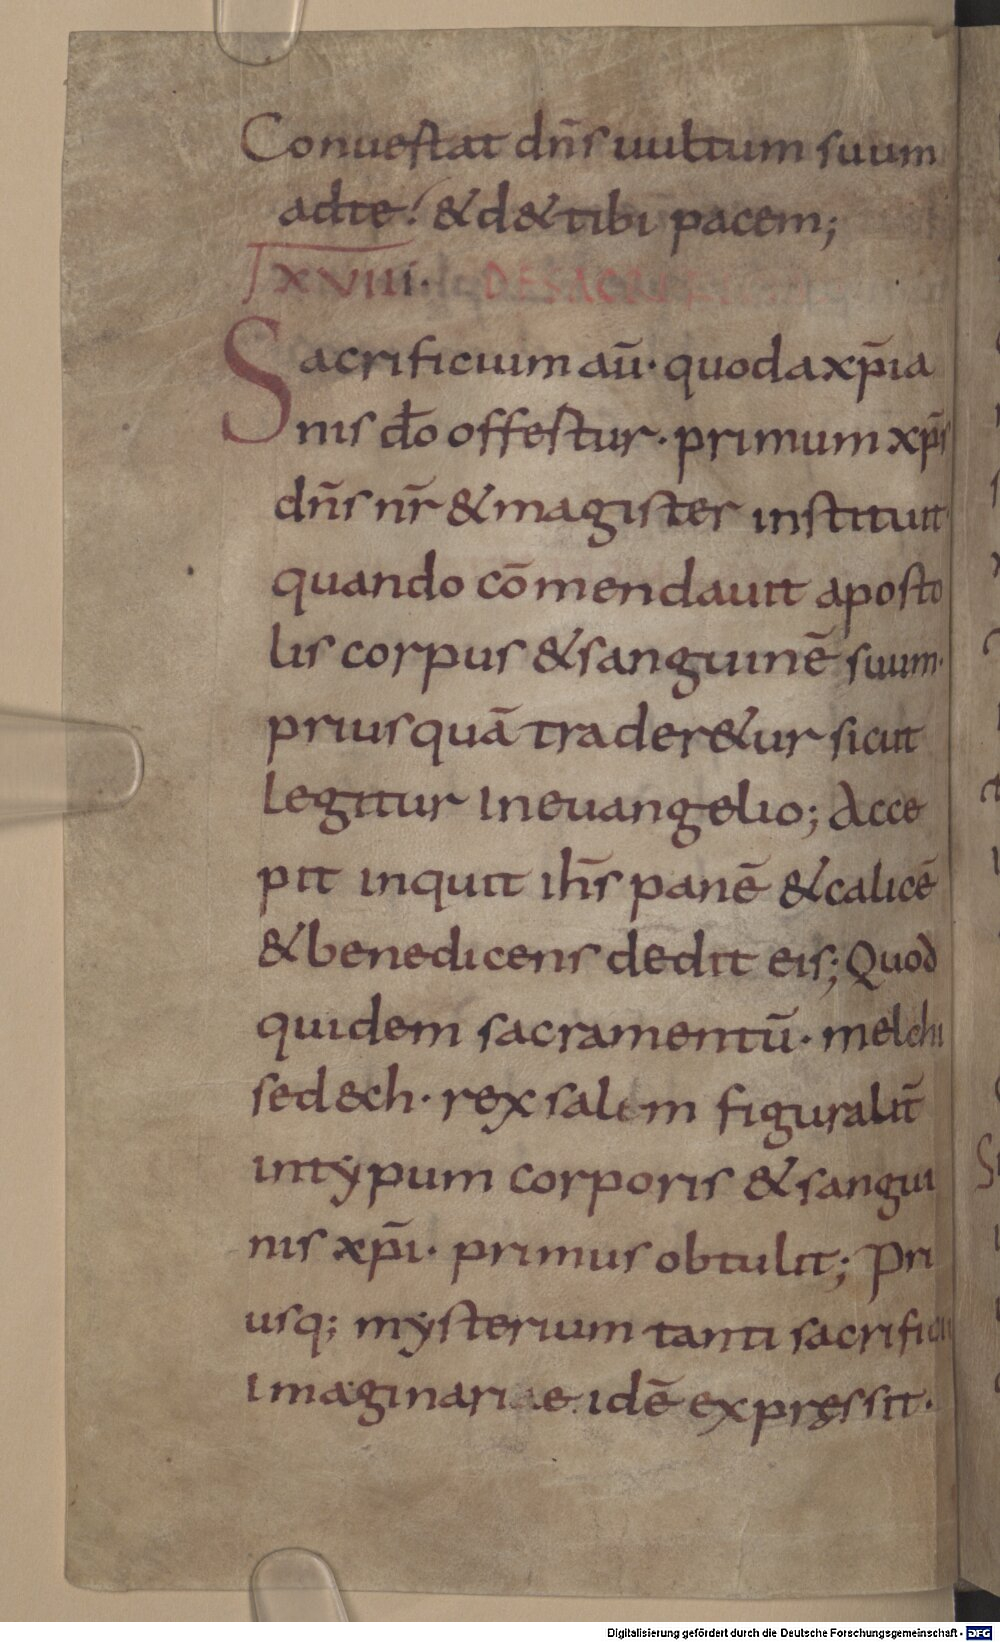 Conuertat dn̄s uultum suum
adte! &d&tibi pacem;
XVIII. DE SACRIFICIIS
Sacrificium aū· quod a xp̄ia
nis do offertur· primum xp̄s
dn̄s nr̄ & magister instituit
quando cōmendauit aposto
lis corpus & sanguinē suum·
priusquā trader&ur sicut
legitur In euangelio; Acce
pit inquit ih̄s panē & calicē
& benedicens dedit eis; Quod
quidem sacramentū· melchi
sedech· rex salem figuralit̄
intypum corporis & sangui
nis xp̄i· primus obtulit; Pri
usq; mysterium tanti sacrificii
Imaginariae idē expressit·
Digitalisierung gefördert durch die Deutsche Forschungsgemeinschaft - DFG